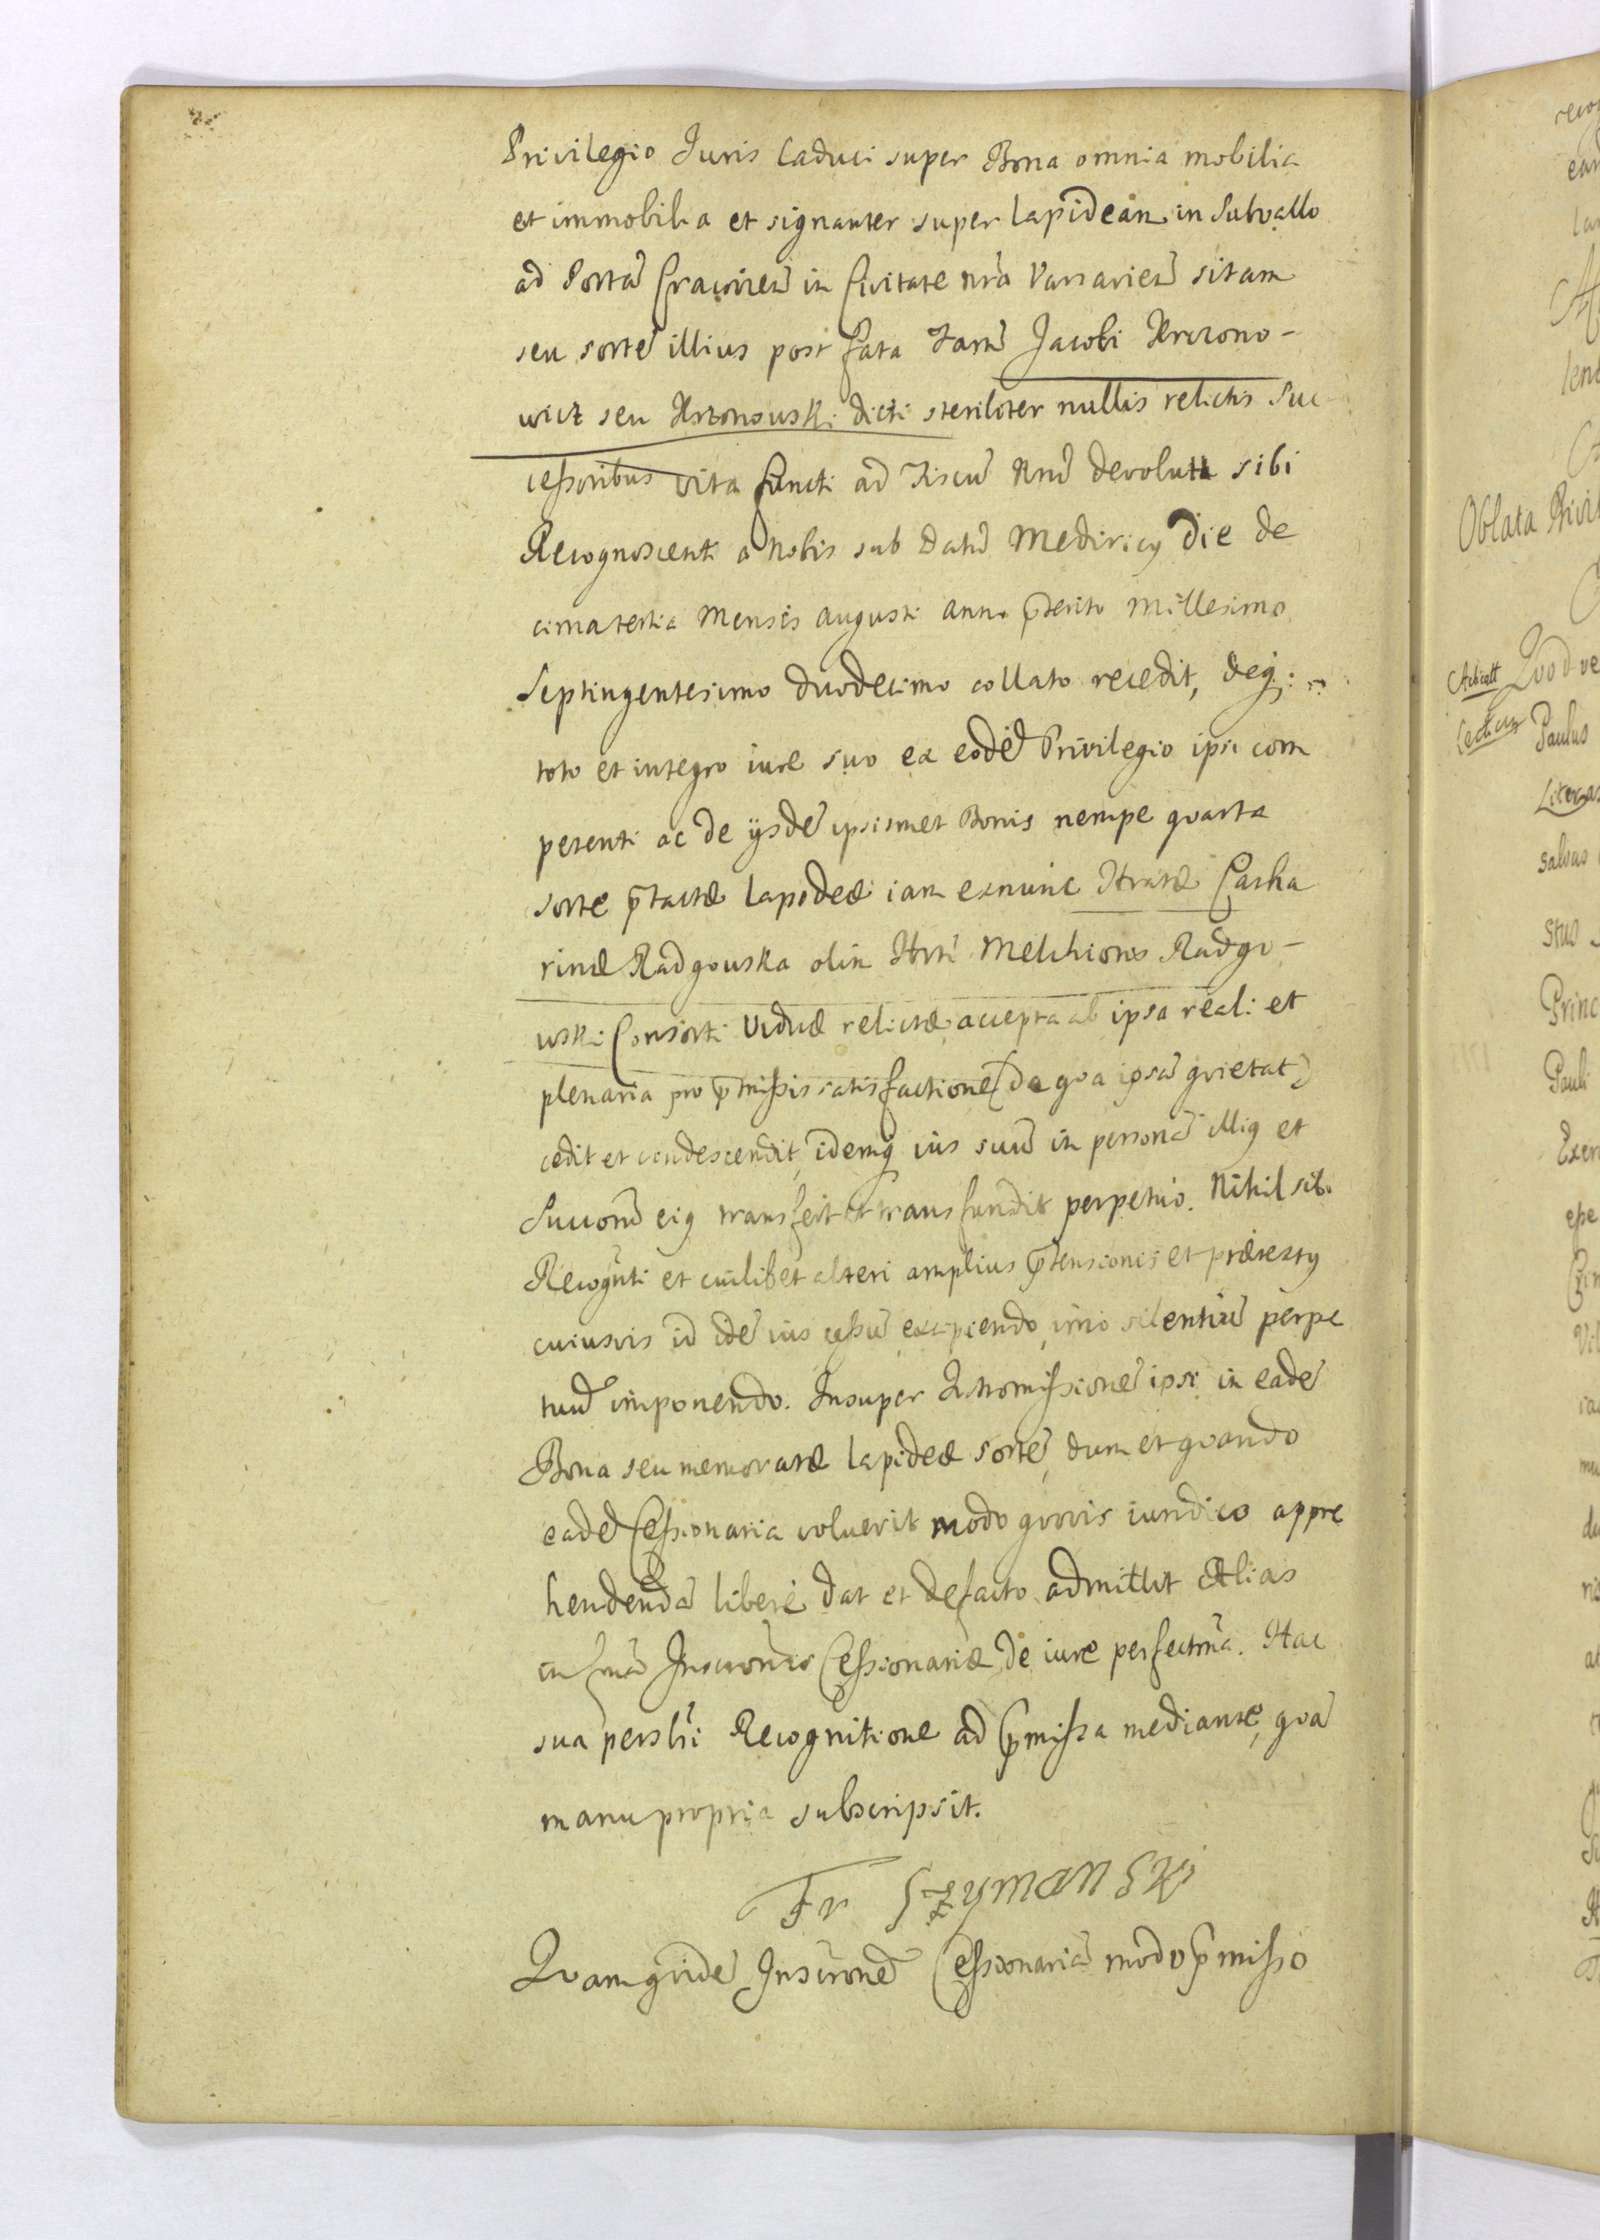 Privilegio Juris Caduci super Bona omnia mobilia
et immobilia et signanter super Lapidean in Subvallo
ad Portã Cracovień in Civitate nrã Varsavień sitam
seu sortẽ illius post fata Jacobi Hrczono-
wicz seu Hrzonowski dicti steriliter nullis relictis Suc-
cessoribus vita functi ad Fiscũ Nrũ devoluta sibi
Recognoscenti a Nobis sub Datũ die de
cima tertia Mensis Augusti anno p̃terito Millesimo
Septingentesimo duodecimo collato recedit, deq:
toto et integro iure suo ex eodẽ Privilegio ipsi com
petenti ac de ijsdẽ ipsismet Bonis nempe quarta
sorte p̃tactæ Lapideæ iam exnunc Catha
rinæ Radgowska olim Melchioris Radgo-
wski Consorti Viduæ relictæ, accepta ab ipsa reali et
plenaria pro p̃missis satisfactione (de qua ipsã quietat)
cedit et condescendit, idemq̃ ius suũ in personã illiq et
Succorũ eiq transfert et transfundit perpetuo. Nihil sibi
Recogñti et cuilibet alteri amplius p̃tensionis et prætextq
cuiusvis id idẽ ius cessũ excipiendo, imo silentiũ perpe
tuũ imponendo. Insuper Intromissionẽ ipsi in eadẽ
Bona seu memoratæ Lapideæ sortẽ, dum et quando
eadẽ Cessionaria voluerit modo quovis iuridico appre
hendendã liberè dat et defacto admittit Alias
in fmã Inscronis Cessionariæ de iure perfectmã. Hac
sua persłi Recognitione ad p̃missa mediante, quã
manu propria subscripsit.
Fr Szymanski
Quamquidẽ Inscronẽ Cessionariã modo p̃misso
Oblata Privil
Quod ve
Paulus
Literas
salvas
Princ
Pauli
Exen